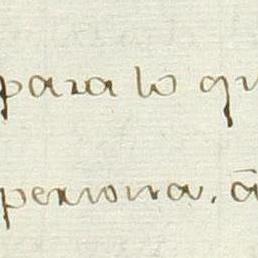 para lo qu
persona. ā